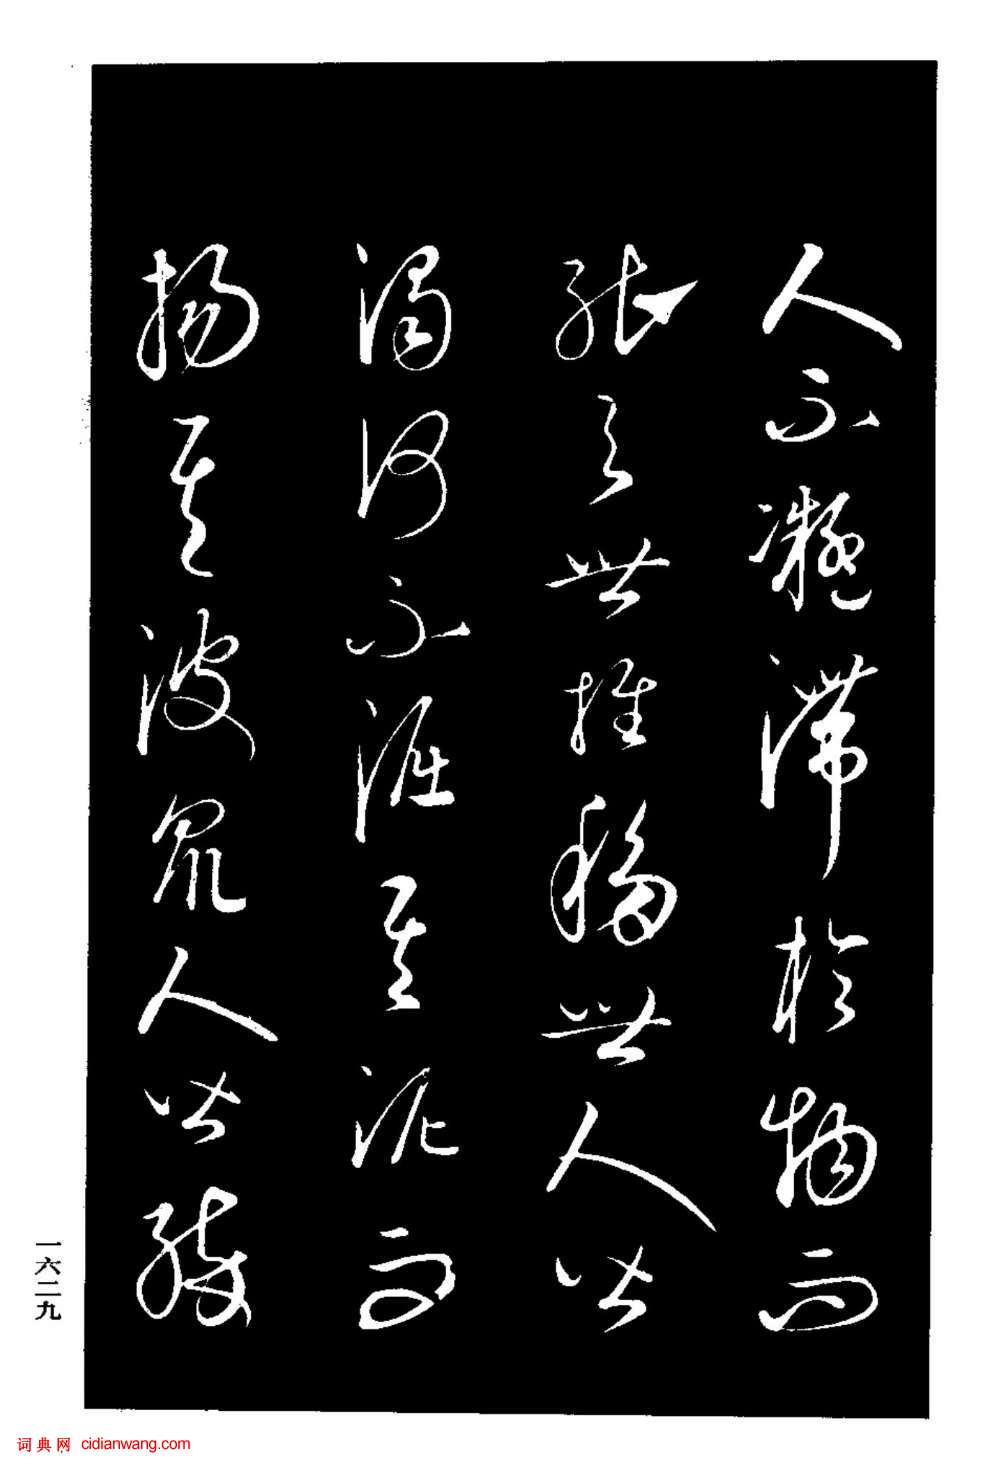 人不凝滯於物而
能與世推移世人皆
濁何不淈其泥而
揚其波眾人皆醉
一六二九
词典网 cidianwang.com